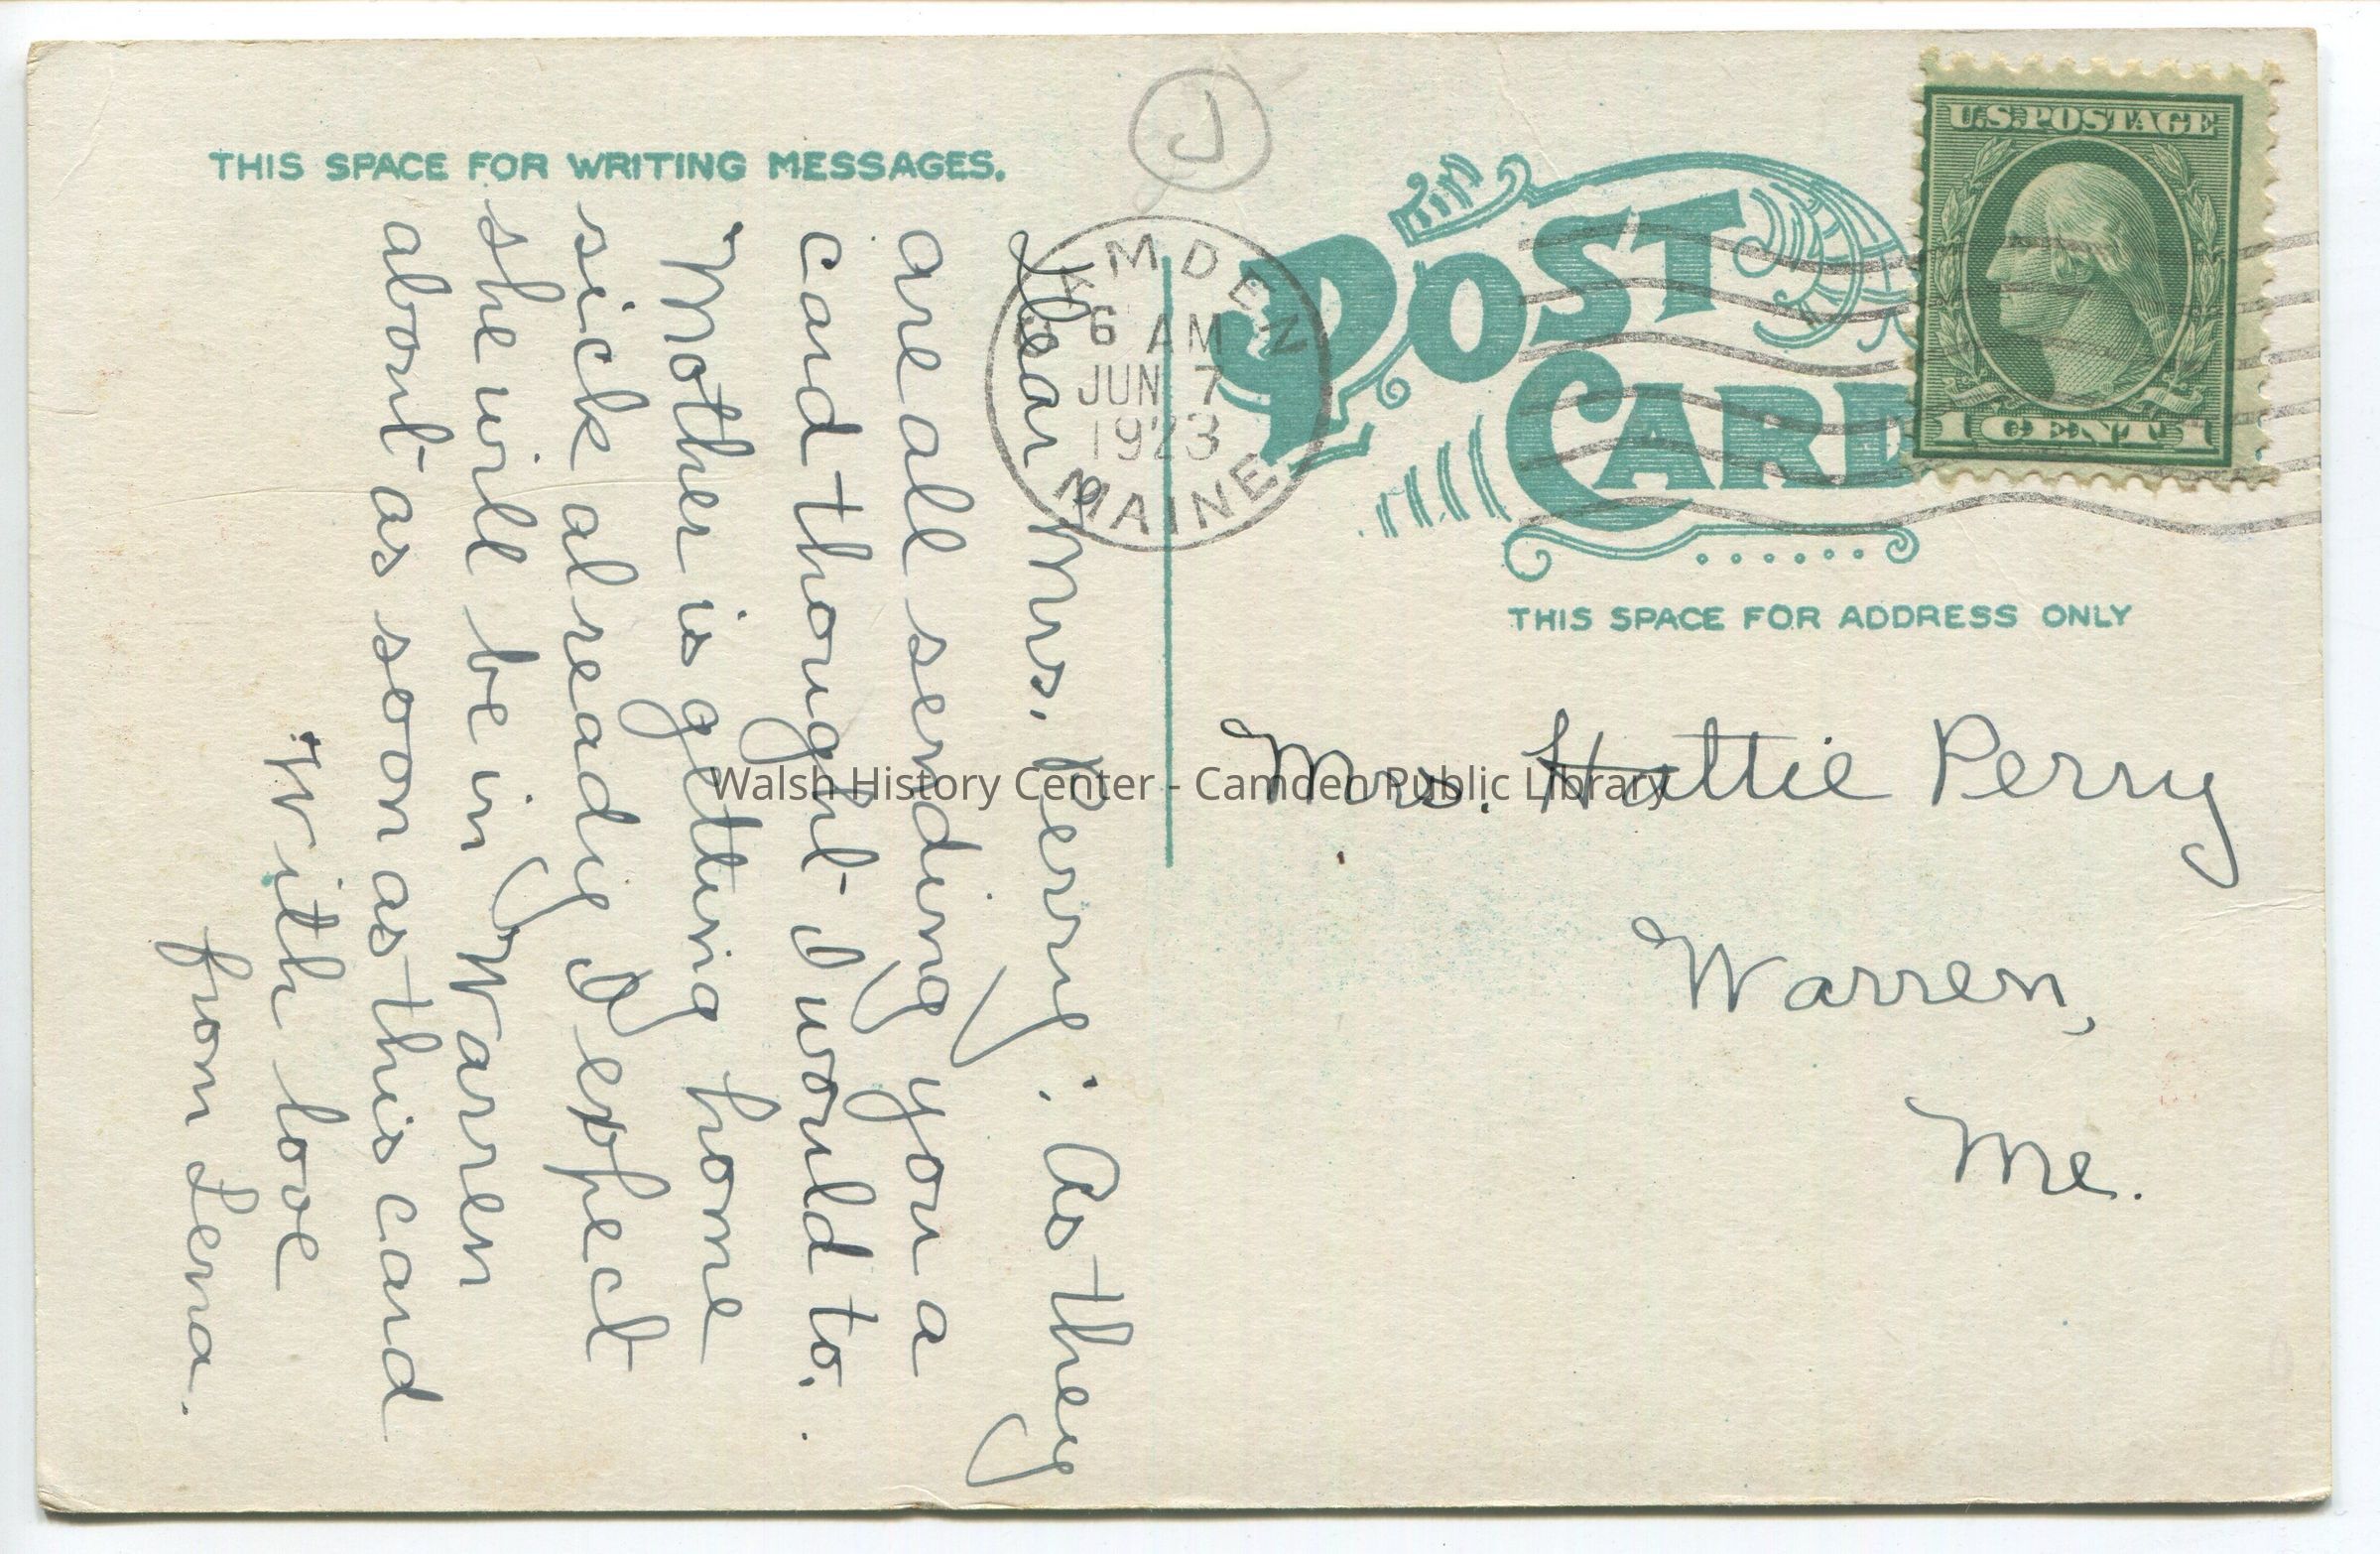 THIS SPACE FOR WRITING MESSAGES.
Dear Mrs. Perry: As they
are all sending you a
card thought I would to.
Mother is getting home
sick already I expect
she will be in Warren
about as soon as this card
With love
from Lena.
J
CAMDEN
6 AM
JUN 7
1923
MAINE
POST
CARD
U.S. POSTAGE
1 CENT 1
THIS SPACE FOR ADDRESS ONLY
Mrs. Hattie Perry
Warren,
Me.
Walsh History Center - Camden Public Library